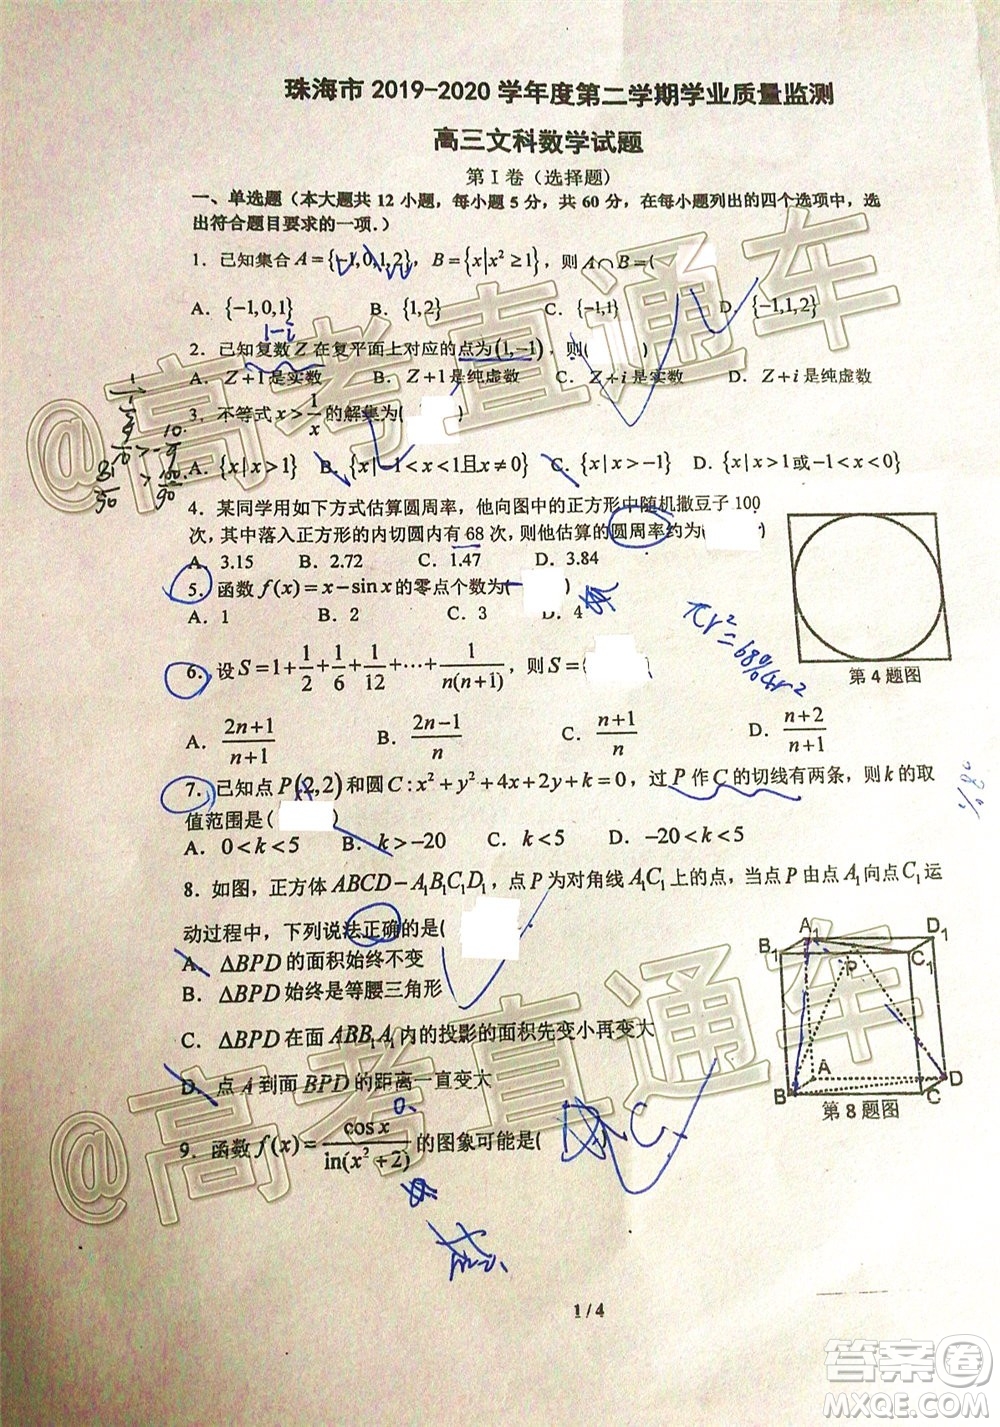 珠海市 2019-2020 学年度第二学期学业质量监测
高三文科数学试题
第 I 卷（选择题）
一、单选题（本大题共 12 小题，每小题 5 分，共 60 分，在每小题列出的四个选项中，选
出符合题目要求的一项.）
1．已知集合 A={-1,0,1,2}，B={x|x²≥1}，则 A∩B=(
A．{-1,0,1} B．{1,2} C．{-1,1} D．{-1,1,2}
1-i
2．已知复数 Z 在复平面上对应的点为(1,-1)，则(
A．Z+1是实数 B．Z+1是纯虚数 C．Z+i是实数 D．Z+i是纯虚数
3．不等式 x>1/x 的解集为(
A．{x|x>1} B．{x|-1<x<1且x≠0} C．{x|x>-1} D．{x|x>1或-1<x<0}
4．某同学用如下方式估算圆周率，他向图中的正方形中随机撒豆子 100
次，其中落入正方形的内切圆内有 68 次，则他估算的圆周率约为(
A．3.15 B．2.72 C．1.47 D．3.84
5．函数 f(x)=x-sinx 的零点个数为( )
A．1 B．2 C．3 D．4
πr²=68%4r²
第 4 题图
6．设 S=1+1/2+1/6+1/12+⋯+1/n(n+1)，则 S=(
A．(2n+1)/(n+1) B．(2n-1)/n C．(n+1)/n D．(n+2)/(n+1)
7．已知点 P(2,2) 和圆 C:x²+y²+4x+2y+k=0，过 P 作 C 的切线有两条，则 k 的取
值范围是(
A．0<k<5 B．k>-20 C．k<5 D．-20<k<5
8．如图，正方体 ABCD-A₁B₁C₁D₁，点 P 为对角线 A₁C₁ 上的点，当点 P 由点 A₁ 向点 C₁ 运
动过程中，下列说法正确的是(
A．ΔBPD 的面积始终不变
B．ΔBPD 始终是等腰三角形
C．ΔBPD 在面 ABB₁A₁ 内的投影的面积先变小再变大
D．点 A 到面 BPD 的距离一直变大
A₁ D₁ B₁ P C₁ A D B C
第 8 题图
9．函数 f(x)=cosx/in(x²+2) 的图象可能是(
C
1 / 4
@高考直通车
@高考直通车
答案圈
MXQE.COM